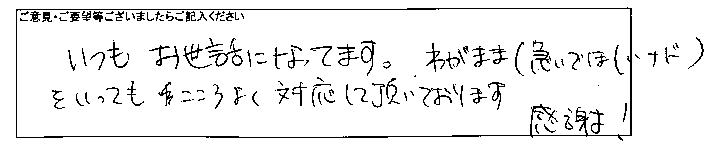 ご意見・ご要望等ございましたらご記入ください
いつも お世話になってます。 わがまま(急いでほしいナド)
をいっても 心こころよく 対応して頂いております
感謝!